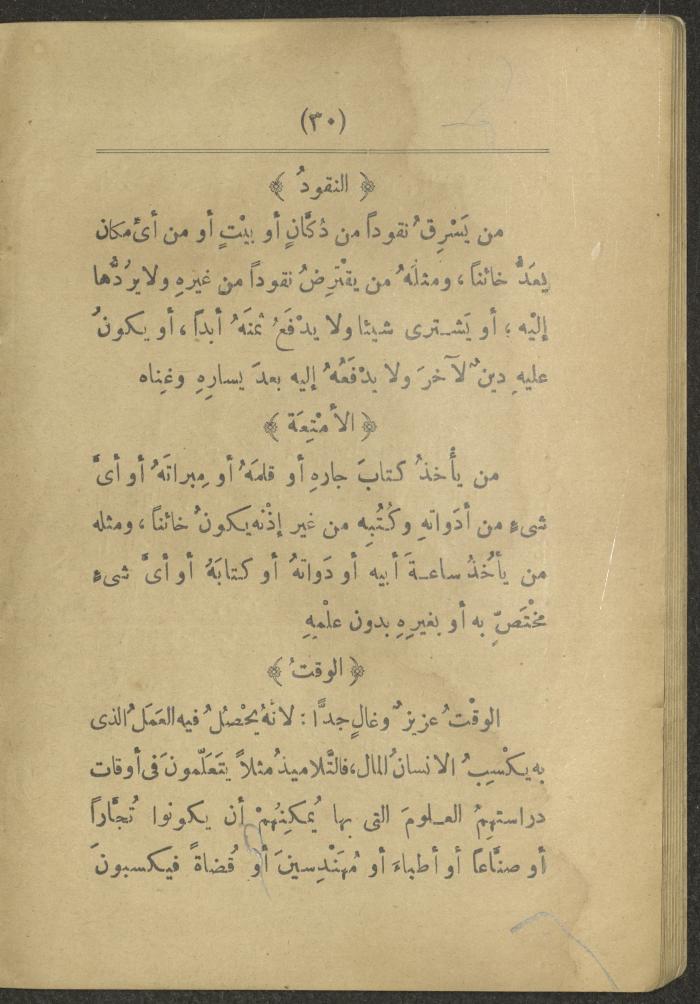 (٣٠)
﴿ النقودُ ﴾
من يَسْرِقُ نقوداً من دُكَّانٍ أو بيْتٍ أو من أىِّ مكان
يعَدُّ خائناً ، ومثلُهُ من يقْتَرِضُ نقوداً من غيرهِ ولا يرُدُّها
إليْه ؛ أو يَشـترى شيئا ولا يدْفَعُ ثمنَهُ أبداً ، أو يكونُ
عليهِ دينٌ لآخرَ ولا يدْفَعُهُ إليه بعدَ يسارِهِ وغِناه
﴿ الأمْتِعَة ﴾
من يأْخذُ كتابَ جارهِ أو قلمَهُ أو مِبراتَهُ أو أىَّ
شىءٍ من أدَواتهِ وكُتُبِه من غير إذْنه يكونُ خائناً ، ومثله
من يأخُذُ ساعـةَ أبيه أو دَواتهُ أو كتابَهُ أو أىَّ شىءٍ
مخْتَصٍّ به أو بغيرِهِ بدون علْمِهِ
﴿ الوقتُ ﴾
الوقْتُ عزيزٌ وغالٍ جدًّا : لأنهُ يحْصُلُ فيه العَمَلُ الذى
به يكْسِبُ الانسانُ المال، فالتَّلاميذُ مثلاً يتَعَلَّمونَ فى أوقات
دراستهِمُ العـلومَ التى بها يُمكِنُهمْ أن يكونوا تُجَّاراً
أو صنَّاعاً أو أطباءَ أو مُهَنْدِسينَ أو قُضاةً فيكسبونَ